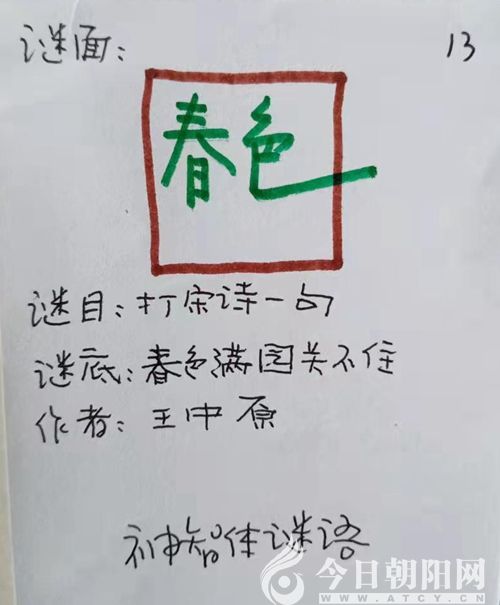 谜面: 13
春色
谜目:打宋诗一句
谜底:春色满园关不住
作者:王中原
神智体谜语
今日朝阳网
WWW.ATCY.CN